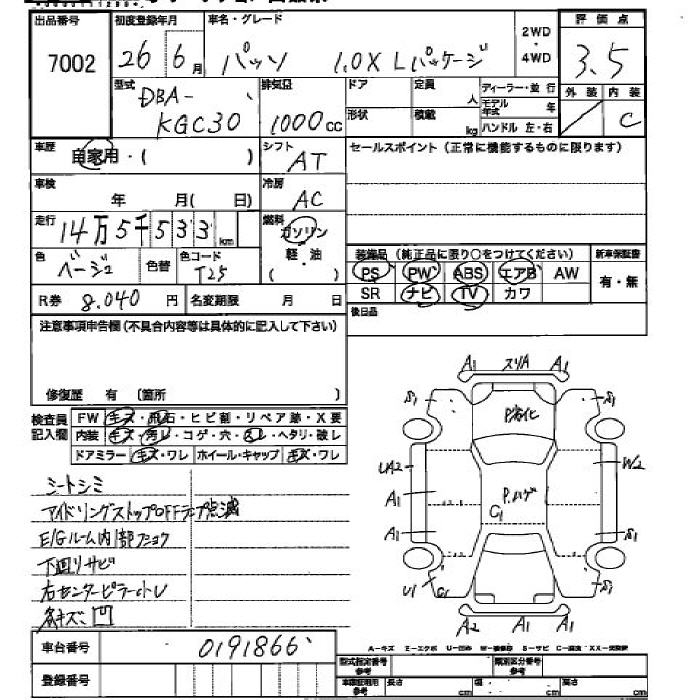 出品番号 初度登録年月 車名・グレード 2WD・4WD 評価点
7002 26 6月 パッソ 1.0X Lパッケージ 3.5
型式 排気量 ドア 定員 人 ディーラー・並行 外装 内装
DBA- KGC30 1000cc 形状 積載 kg モデル年式 年 ハンドル 左・右 C
車歴 自家用・( ) シフト AT セールスポイント(正常に機能するものに限ります)
車検 年 月( 日) 冷房 AC
走行 14万5千533km 燃料 ガソリン 軽・油 ( )
色 ベージュ 色替 色コード T25 装備品(純正品に限り○をつけてください) 新車保証書
PS PW ABS エアB AW 有・無
R券 8.040円 名変期限 月 日 SR ナビ TV カワ
注意事項申告欄(不具合内容等は具体的に記入して下さい) 後日品
修復歴 有 〔箇所 〕
検査員記入欄 FW キズ・飛石・ヒビ割・リペア跡・X要
内装 キズ・汚レ・コゲ・穴・スレ・ヘタリ・破レ
ドアミラー キズ・ワレ ホイール・キャップ キズ・ワレ
シートシミ
アイドリングストップOFFランプ点滅
E/Gルーム内1部フショク
下回リサビ
右センターピラー小凹
キズ 凹
A1 スリA A1
S1 P劣化 S1
UA2 W2
A1 P.ハゲ
C1
A1 S1
U1 C1 S1
A2 A1 A1
車台番号 0191866
A-キズ E-エクボ U-凹み W-補修跡 S-サビ C-腐食
登録番号 型式指定番号 参考 類別区分番号 参考
車庫証明用 参考 長さ cm 幅 cm 高さ cm